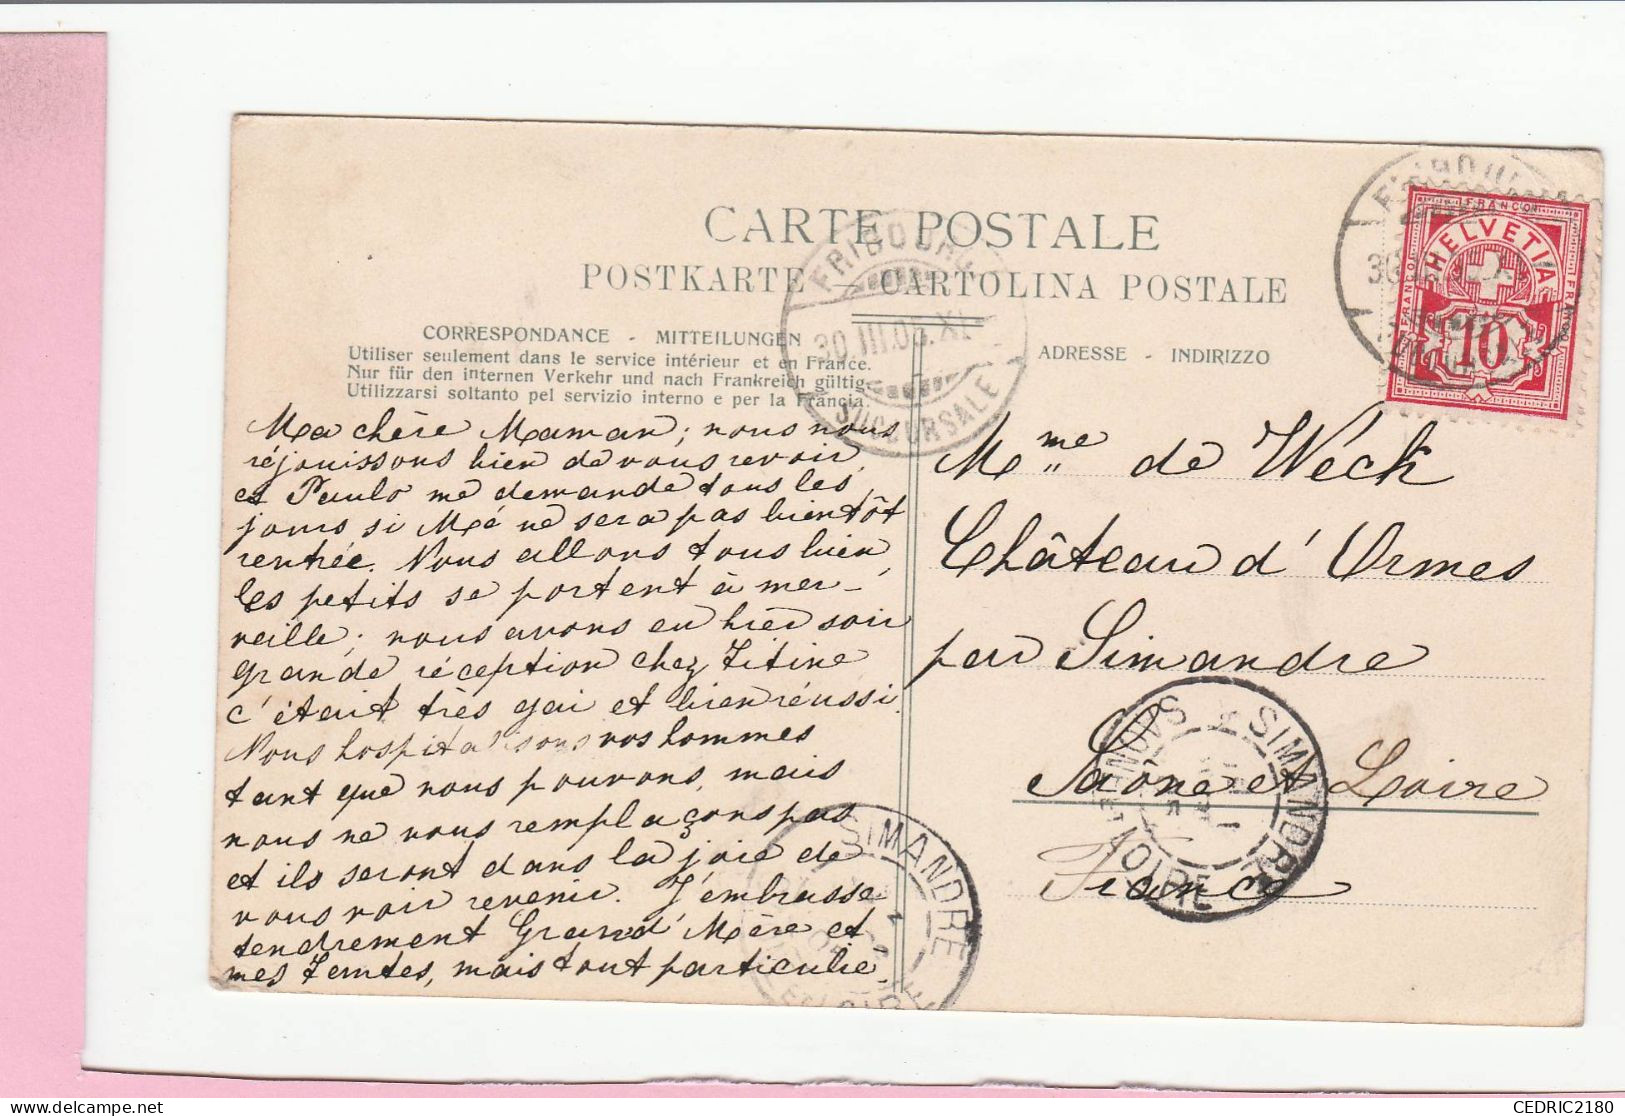 CARTE POSTALE
POSTKARTE — CARTOLINA POSTALE
CORRESPONDANCE - MITTEILUNGEN
Utiliser seulement dans le service intérieur et en France.
Nur für den internen Verkehr und nach Frankreich gültig.
Utilizzarsi soltanto pel servizio interno e per la Francia.
ADRESSE - INDIRIZZO
FRIBOURG
30.III.05.XI
SUCCURSALE
FRANCO
FRANCO
FRANCO
HELVETIA
10
Ma chère Maman; nous nous
réjouissons bien de vous revoir
et Paulo me demande tous les
jours si Mé ne sera pas bientôt
rentrée. Nous allons tous bien,
les petits se portent à mer-
veille; nous avons eu hier soir
grande réception chez Titine
c'était très gai et bien réussi.
Nous hospitalisons vos hommes
tant que nous pouvons, mais
nous ne vous remplaçons pas
et ils seront dans la joie de
vous voir revenir. J'embrasse
tendrement Grand'Mère et
mes Tentes, mais tout particulie-
Mme de Weck
Château d'Ormes
par Simandre
Saone et Loire
France
SIMANDRE
SAONE-ET-LOIRE
SIMANDRE
CEDRIC2180